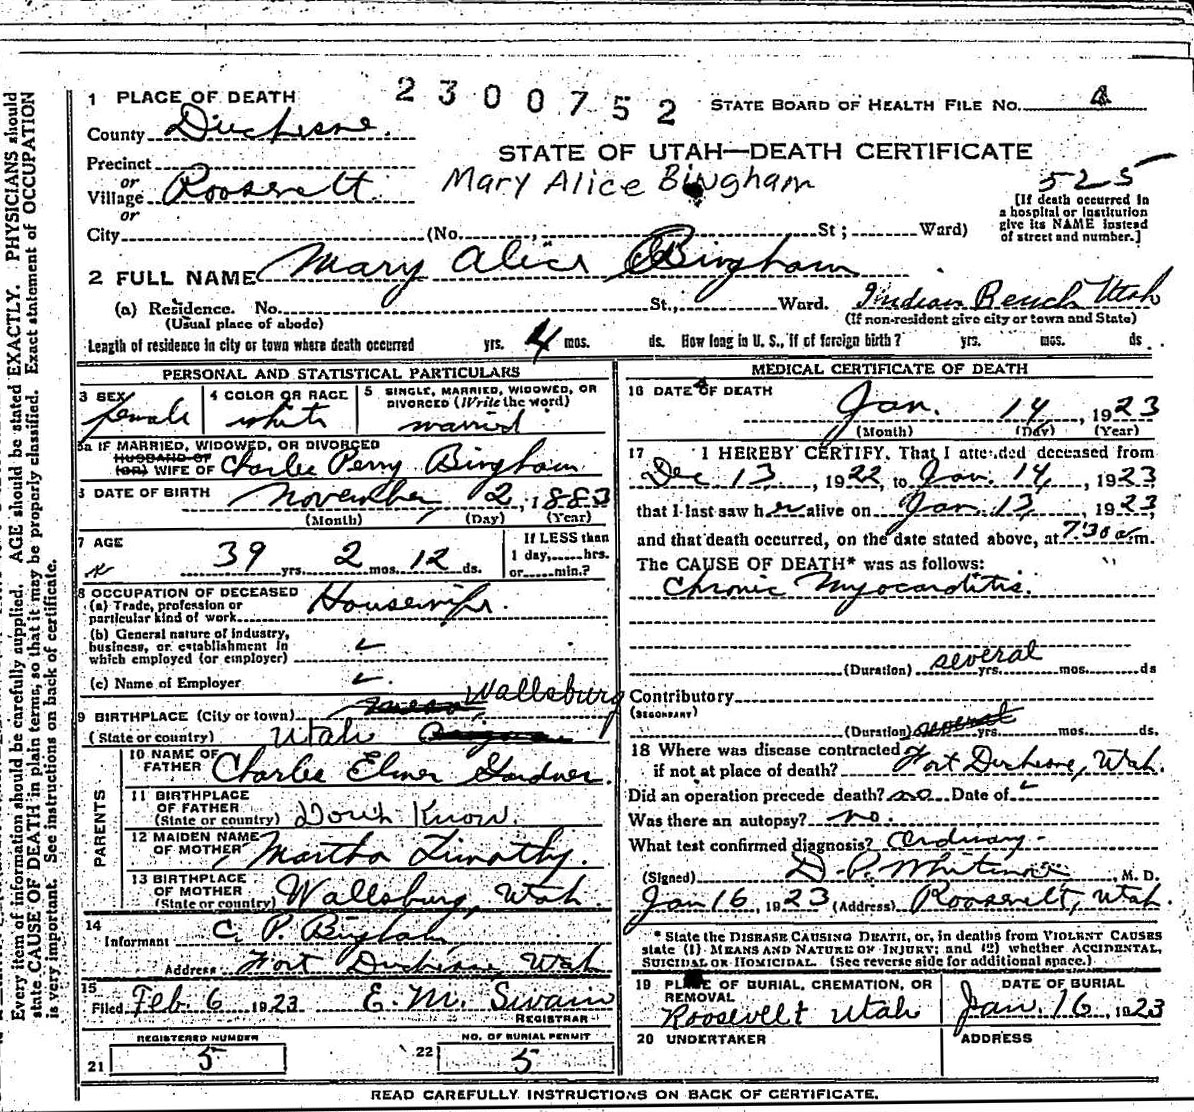 2300752
1 PLACE OF DEATH
STATE BOARD OF HEALTH FILE No. 4
County Duchesne
STATE OF UTAH—DEATH CERTIFICATE
Precinct
or
Village Roosevelt
Mary Alice Bingham
525
[If death occurred in a hospital or institution give its NAME instead of street and number.]
or
City (No. , St; Ward)
2 FULL NAME Mary Alice Bingham
(a) Residence. No. St., Ward. Indian Bench Utah
(Usual place of abode)
(If non-resident give city or town and State)
Length of residence in city or town where death occurred yrs. 4 mos. ds. How long in U. S., if of foreign birth? yrs. mos. ds.
PERSONAL AND STATISTICAL PARTICULARS
3 SEX female
4 COLOR OR RACE white
5 SINGLE, MARRIED, WIDOWED, OR DIVORCED (Write the word) married
5a IF MARRIED, WIDOWED, OR DIVORCED
HUSBAND OF
(or) WIFE OF Charlie Perry Bingham
6 DATE OF BIRTH November 2, 1883
(Month) (Day) (Year)
7 AGE 39 yrs. 2 mos. 12 ds.
If LESS than 1 day, hrs. or min.?
8 OCCUPATION OF DECEASED
(a) Trade, profession or particular kind of work Housewife.
(b) General nature of industry, business, or establishment in which employed (or employer)
(c) Name of Employer
9 BIRTHPLACE (City or town) Wallsburg
(State or country) Utah
PARENTS
10 NAME OF FATHER Charlie Elmer Gardner.
11 BIRTHPLACE OF FATHER (State or country) Don't Know.
12 MAIDEN NAME OF MOTHER Martha Timothy.
13 BIRTHPLACE OF MOTHER (State or country) Wallsburg, Utah
14 Informant C. P. Bingham
Address Fort Duchesne, Utah
15 Filed Feb 6 1923 E. M. Swain
REGISTRAR
REGISTERED NUMBER
21 5
NO. OF BURIAL PERMIT
22 5
MEDICAL CERTIFICATE OF DEATH
16 DATE OF DEATH
Jan. 14, 1923
(Month) (Day) (Year)
17 I HEREBY CERTIFY, That I attended deceased from
Dec 13, 1922, to Jan. 14, 1923
that I last saw her alive on Jan. 13, 1923,
and that death occurred, on the date stated above, at 7:30 a.m.
The CAUSE OF DEATH* was as follows:
Chronic Myocarditis.
(Duration) several yrs. mos. ds
Contributory
(SECONDARY)
(Duration) several yrs. mos. ds.
18 Where was disease contracted
if not at place of death? Fort Duchesne, Utah.
Did an operation precede death? no Date of
Was there an autopsy? no.
What test confirmed diagnosis? Ordinary
(Signed) D. P. Whitmore, M. D.
Jan 16, 1923 (Address) Roosevelt, Utah.
* State the DISEASE CAUSING DEATH, or, in deaths from VIOLENT CAUSES
state (1) MEANS AND NATURE OF INJURY; and (2) whether ACCIDENTAL,
SUICIDAL OR HOMICIDAL. (See reverse side for additional space.)
19 PLACE OF BURIAL, CREMATION, OR REMOVAL
Roosevelt Utah
DATE OF BURIAL
Jan. 16, 1923
20 UNDERTAKER
ADDRESS
READ CAREFULLY INSTRUCTIONS ON BACK OF CERTIFICATE.
Every item of information should be carefully supplied. AGE should be stated EXACTLY. PHYSICIANS should
state CAUSE OF DEATH in plain terms, so that it may be properly classified. Exact statement of OCCUPATION
is very important. See instructions on back of certificate.